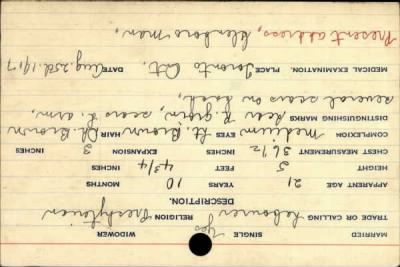 MARRIED SINGLE Yes WIDOWER
TRADE OR CALLING Labourer RELIGION Presbyterian
DESCRIPTION.
APPARENT AGE 21 YEARS 10 MONTHS
HEIGHT 5 FEET 4 3/4 INCHES
CHEST MEASUREMENT 36 1/2 INCHES EXPANSION 3 INCHES
COMPLEXION medium EYES Lt. Brown HAIR Dk Brown
DISTINGUISHING MARKS scar R. groin, scars L. arm,
several scars on back,
MEDICAL EXAMINATION. PLACE Toronto Ont. DATE Aug. 25th. 1917
Present address, Glenboro Man,